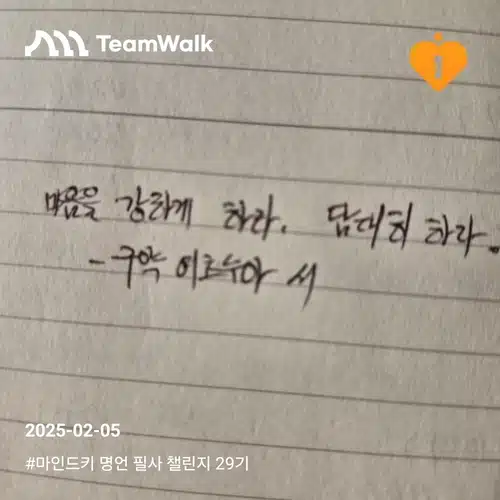 TeamWalk
1
마음을 강하게 하라. 담대히 하라.
- 구약 여호수아 서
2025-02-05
#마인드키 명언 필사 챌린지 29기